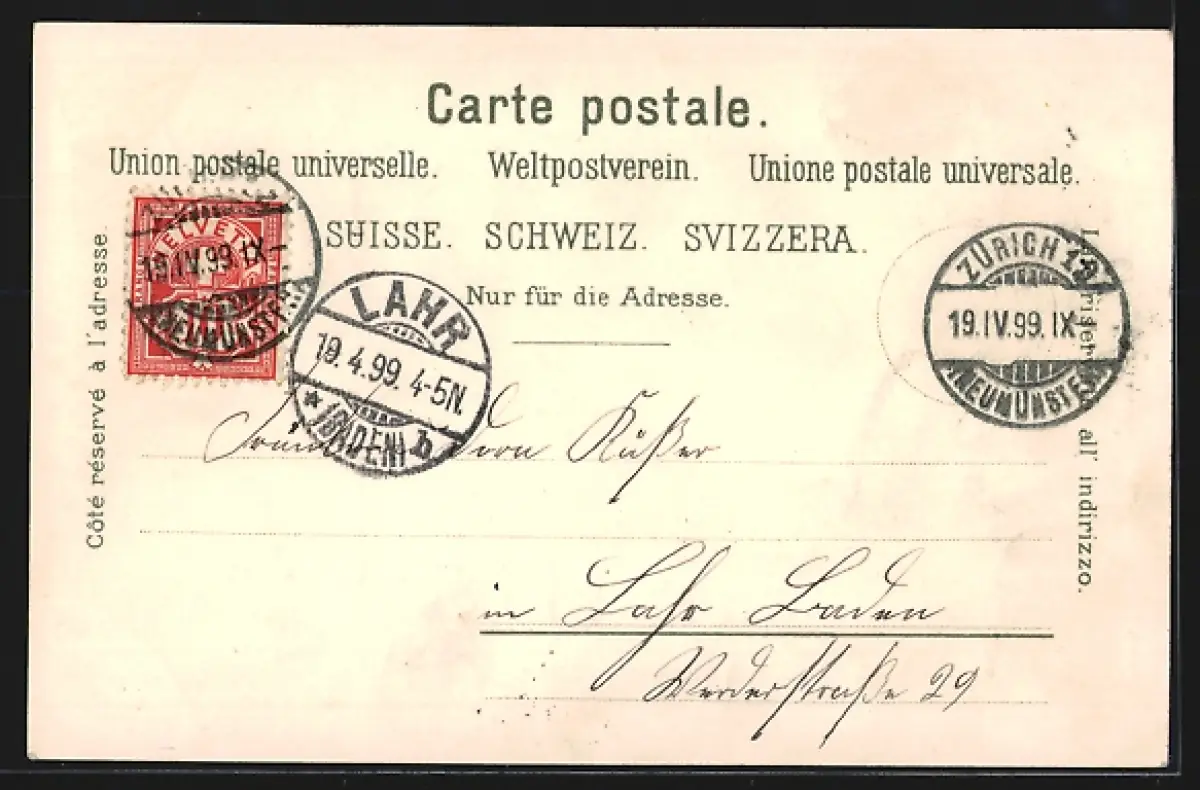 Carte postale.
Union postale universelle. Weltpostverein. Unione postale universale.
SUISSE. SCHWEIZ. SVIZZERA.
Nur für die Adresse.
Côté réservé à l'adresse.
al' indirizzo.
HELVETIA
19.IV.99.IX-
NEUMÜNSTER
LAHR
19.4.99. 4-5N.
* (BADEN) b
ZÜRICH 12
19.IV.99.IX-
NEUMÜNSTER
in Lahr Baden
Werderstraße 29